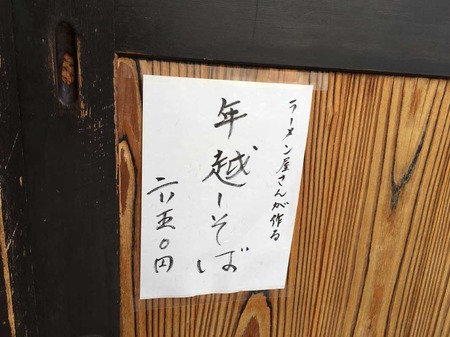 ラーメン屋さんが作る
年越しそば
六五〇円